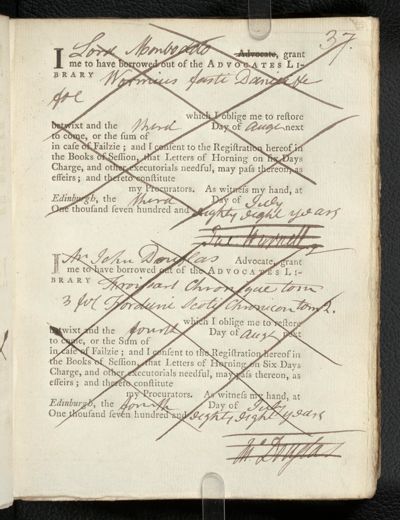 37.
I Lord Monboddo Advocate, grant
me to have borrowed out of the ADVOCATES LI-
BRARY Wormius fasti Danicæ
fol
which I oblige me to restore
betwixt and the third Day of Augt next
to come, or the sum of
in case of Failzie; and I consent to the Registration hereof in
the Books of Session, that Letters of Horning on six Days
Charge, and other executorials needful, may pass thereon, as
effeirs; and thereto constitute
my Procurators. As witness my hand, at
Edinburgh, the third Day of July
One thousand seven hundred and eighty eight years
I Mr John Douglas Advocate, grant
me to have borrowed out of the ADVOCATES LI-
BRARY Froissart Chronique tom
3 fol Forduni Scoti Chronicon tom 2.
which I oblige me to restore
betwixt and the fourth Day of Augt next
to come, or the Sum of
in case of Failzie; and I consent to the Registration hereof in
the Books of Session, that Letters of Horning on Six Days
Charge, and other executorials needful, may pass thereon, as
effeirs; and thereto constitute
my Procurators. As witness my hand, at
Edinburgh, the fourth Day of July
One thousand seven hundred and eighty eight years
Douglas